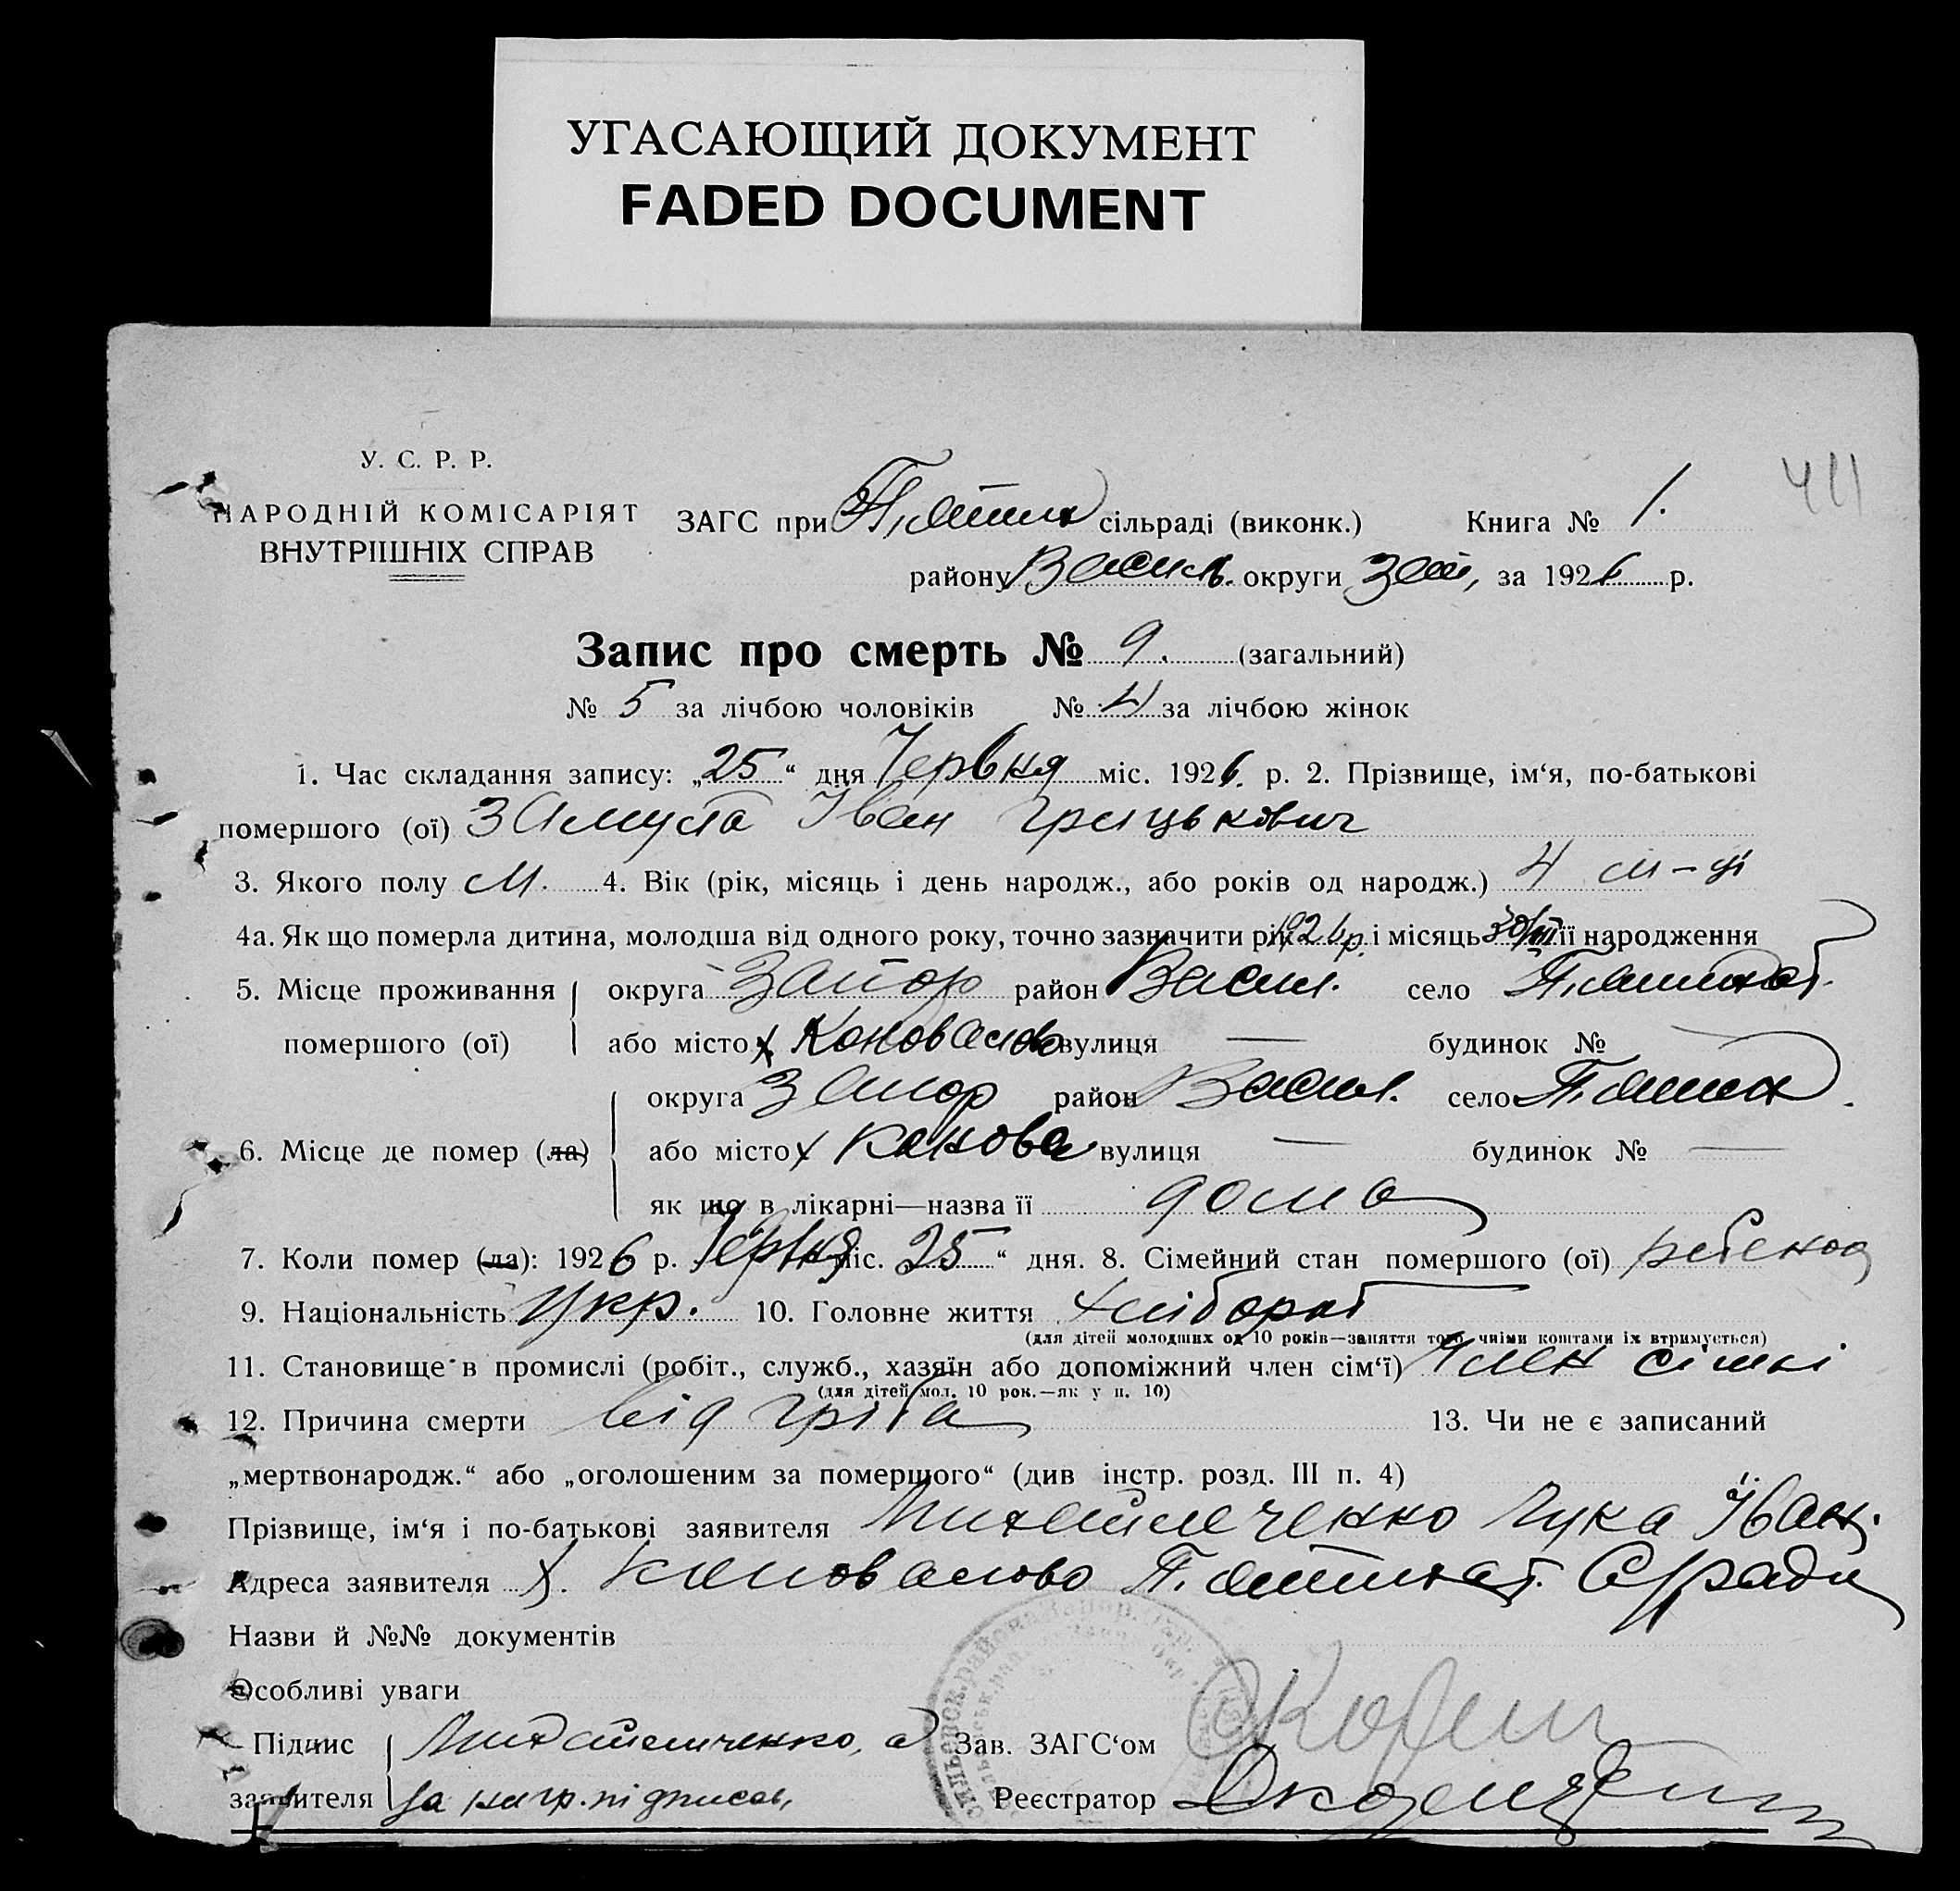 УГАСАЮЩИЙ ДОКУМЕНТ
FADED DOCUMENT
У. С. Р. Р.
НАРОДНІЙ КОМІСАРІЯТ
ВНУТРІШНІХ СПРАВ
ЗАГС при сільраді (виконк.) Книга № 1.
району Васил. округи Зап, за 1926 р.
Запис про смерть № 9. (загальний)
№ 5 за лічбою чоловіків № 4 за лічбою жінок
1. Час складання запису: „25“ дня Червня міс. 1926. р. 2. Прізвище, ім‘я, по-батькові
помершого (ої) Замула Іван Грицькович
3. Якого полу М. 4. Вік (рік, місяць і день народж., або років од народж.) 4 м-ці
4а. Як що померла дитина, молодша від одного року, точно зазначити рік 1926 р. і місяць її народження
5. Місце проживання округа Запор район Васил. село
помершого (ої) або місто х Коновалово вулиця — будинок № —
округа Запор район Васил. село
6. Місце де помер (ла) або місто х Конова вулиця — будинок № —
як що в лікарні—назва її дома
7. Коли помер (ла): 1926 р. Червня міс. 25 “ дня. 8. Сімейний стан помершого (ої) ребенок
9. Національність Укр. 10. Головне життя хлібороб
(для дітей молодших од 10 років—заняття того чиїми коштами їх втримується)
11. Становище в промислі (робіт., служб., хазяїн або допоміжний член сім‘ї) Член сімї
(для дітей мол. 10 рок.—як у п. 10)
12. Причина смерти від 13. Чи не є записаний
„мертвонародж.“ або „оголошеним за помершого“ (див інстр. розд. III п. 4)
Прізвище, ім‘я і по-батькові заявителя Михайличенко Лука Іван.
Адреса заявителя х. Коновалово С/ради
Назви й №№ документів
Особливі уваги
Підпис Михайличенко, а Зав. ЗАГС‘ом
заявителя за нагр. підписав Реєстратор